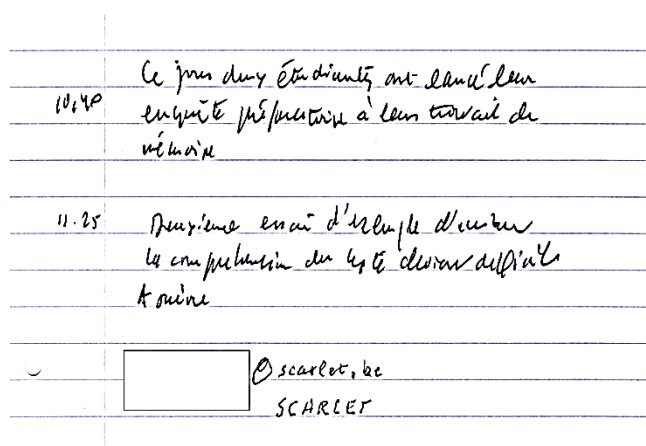 10,40 Ce jour deux étudiantes ont lancé leur
enquête préparatoire à leur travail de
mémoire
11.25 Deuxième essai d'exemple d'
la compréhension du texte devient difficile
A suivre
@scarlet.be
SCARLET